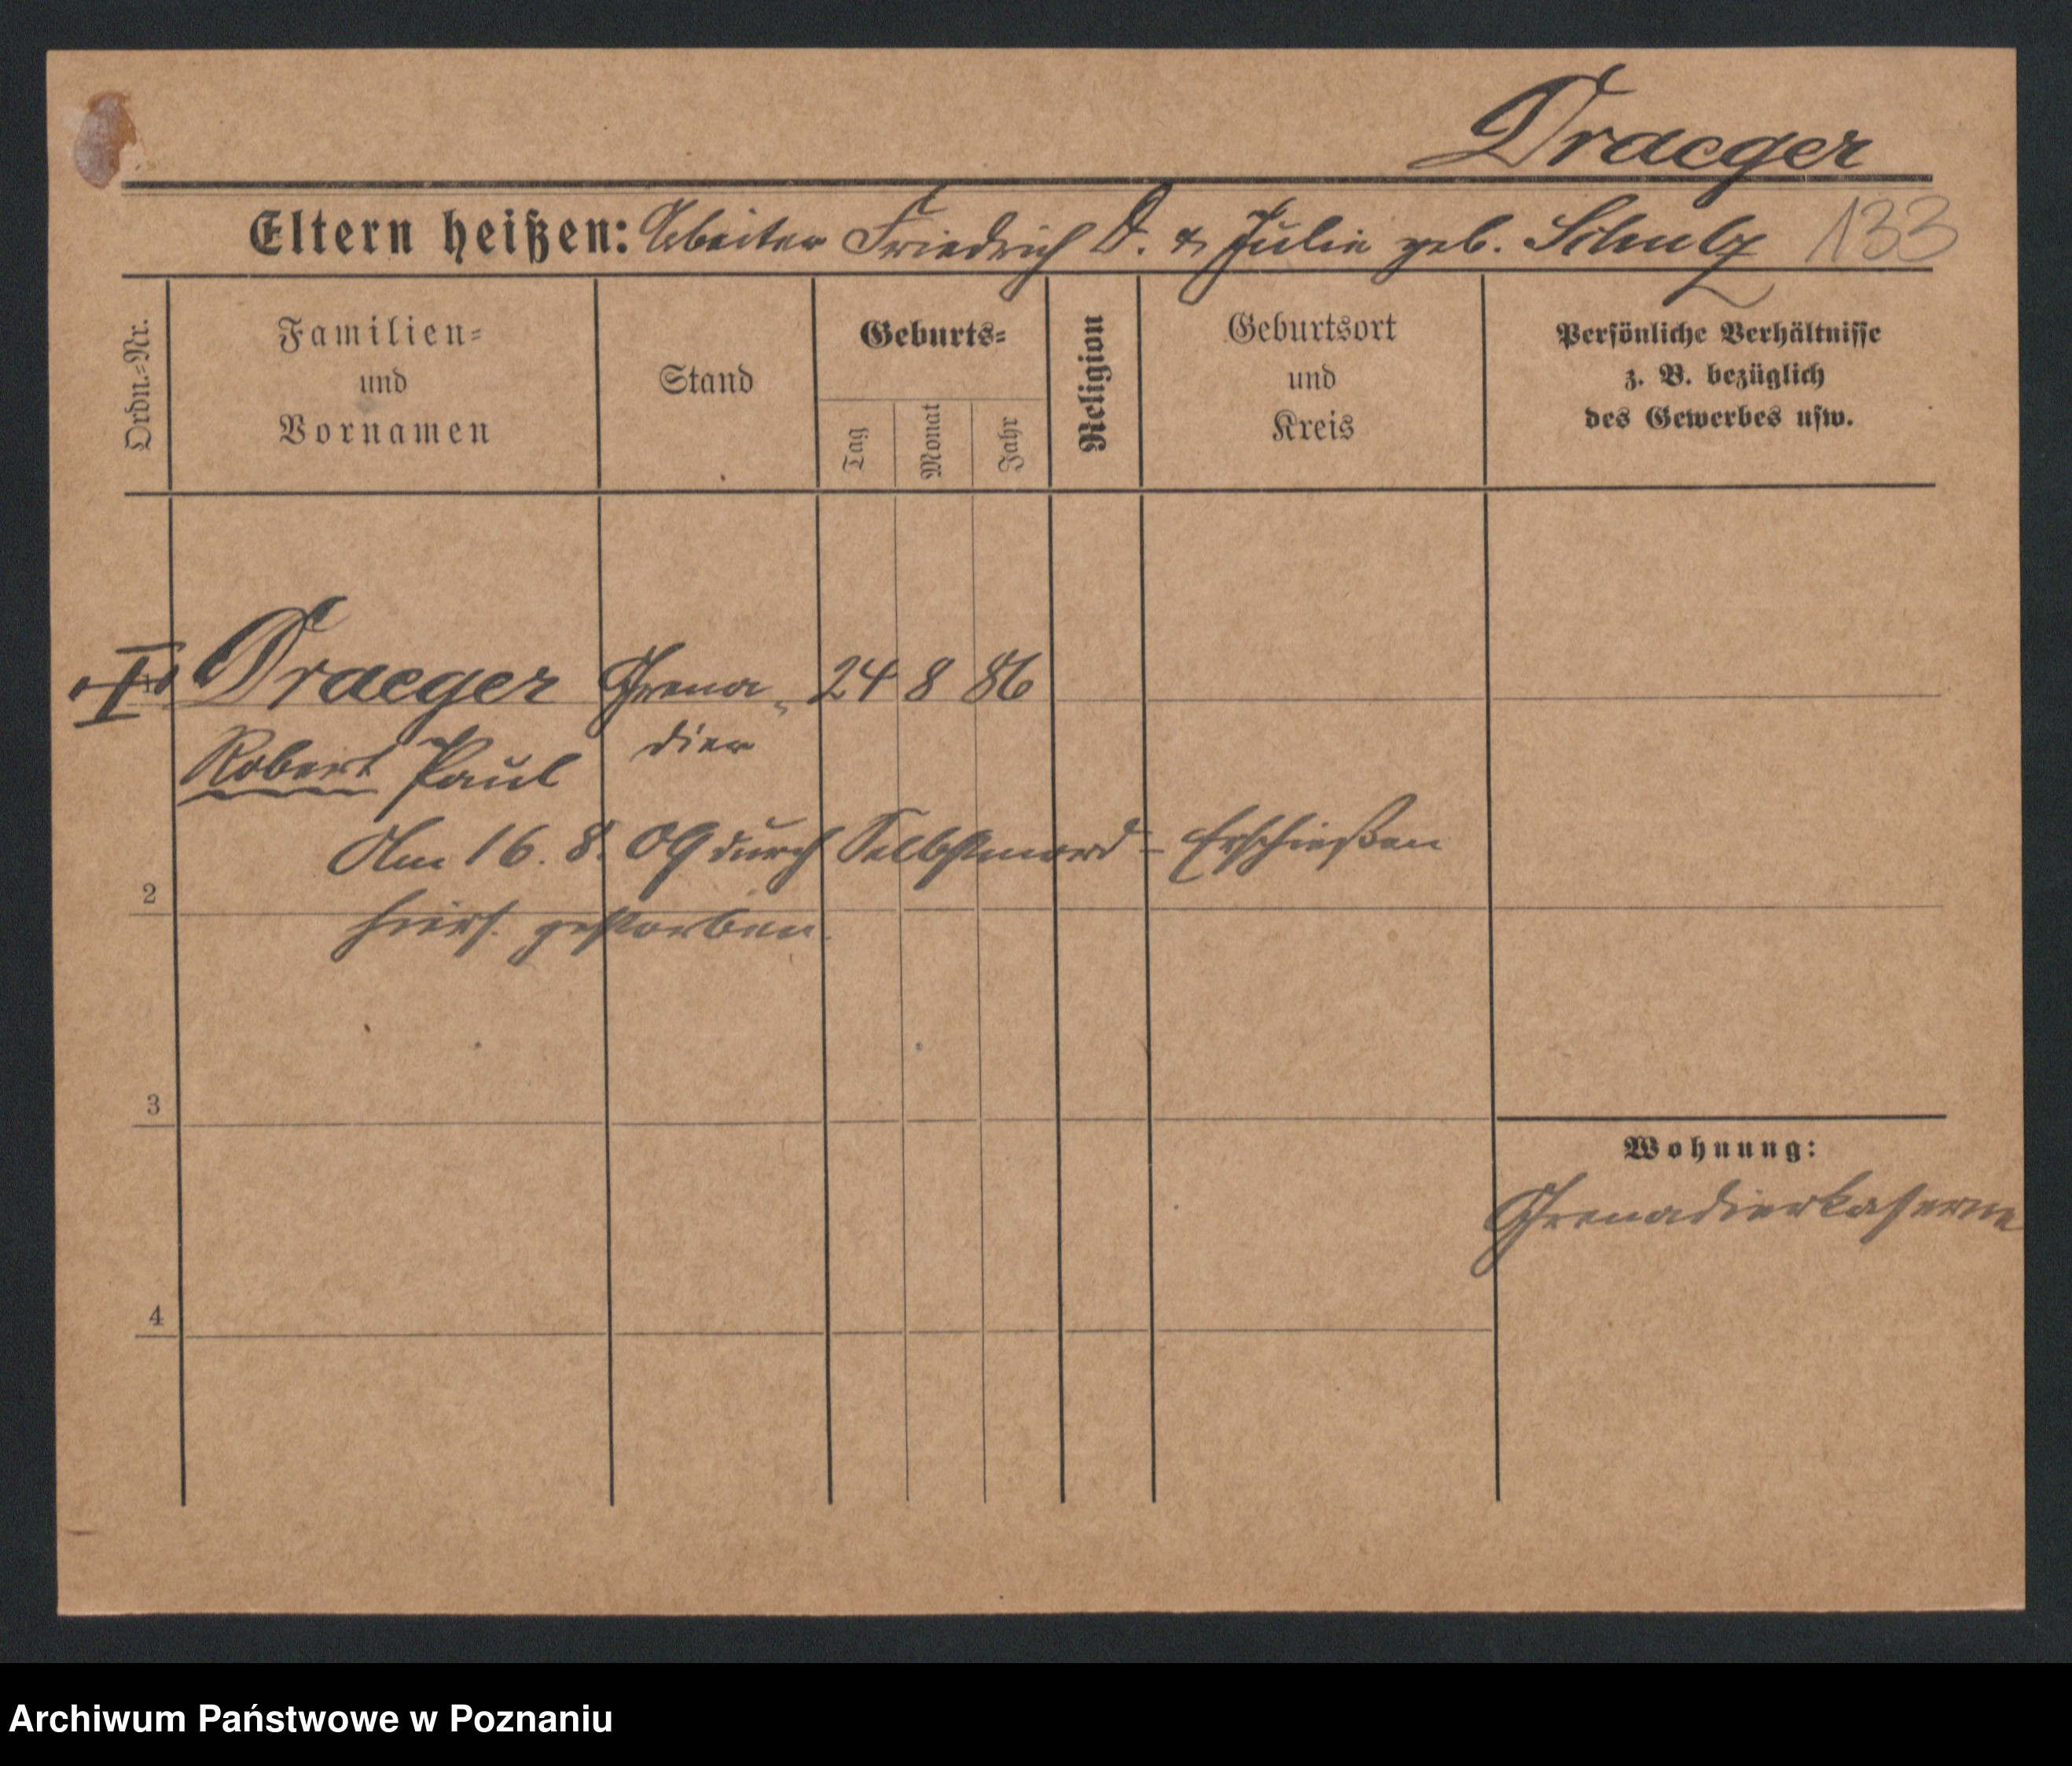 Draeger
Eltern heißen: Arbeiter Friedrich D. & Julie geb. Schulz 133
Ordn.-Nr.
Familien-
und
Vornamen
Stand
Geburts-
Tag
Monat
Jahr
Religion
Geburtsort
und
Kreis
Persönliche Verhältnisse
z. B. bezüglich
des Gewerbes usw.
I Draeger Grena- 24 8 86
dier
Robert Paul
Am 16. 8. 09 durch Selbstmord - Erschießen
2
hiers. gestorben.
3
Wohnung:
Grenadierkaserne
4
Archiwum Państwowe w Poznaniu